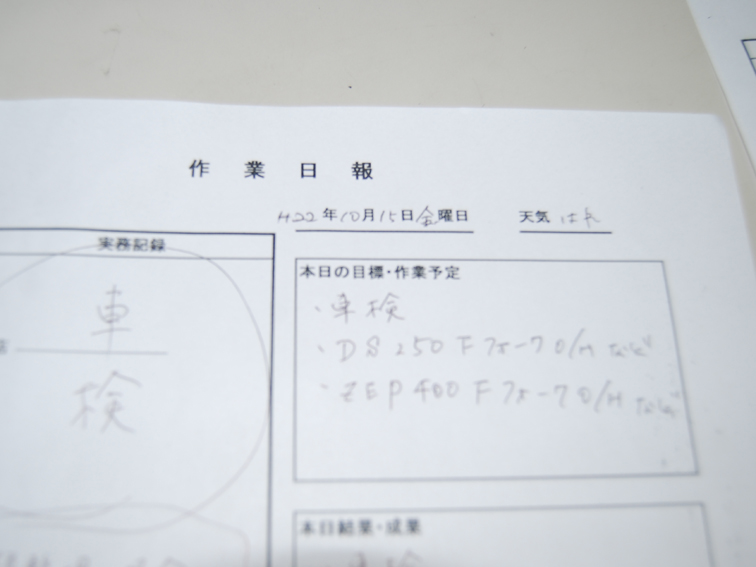 作業日報
H22年10月15日金曜日 天気 はれ
実務記録
車
検
本日の目標・作業予定
・車検
・DS250 Fフォーク O/H など
・ZEP400 Fフォーク O/H など
本日結果・成果
車検